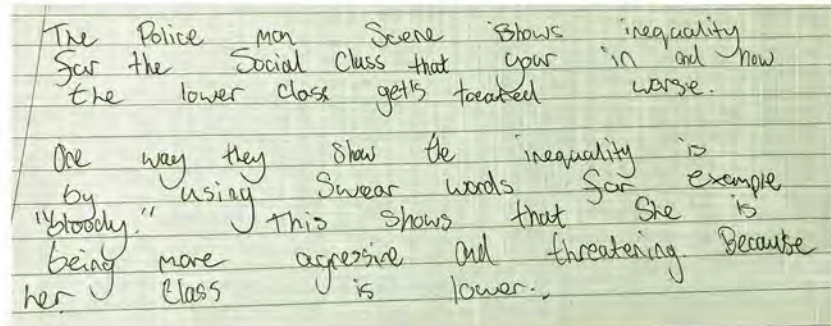 The Police man Scene Shows inequality
for the Social Class that your in and how
the lower class gets treated worse.
One way they show the inequality is
by using Swear words for example
"bloody." This shows that She is
being more agressive and threatening. Because
her Class is lower.